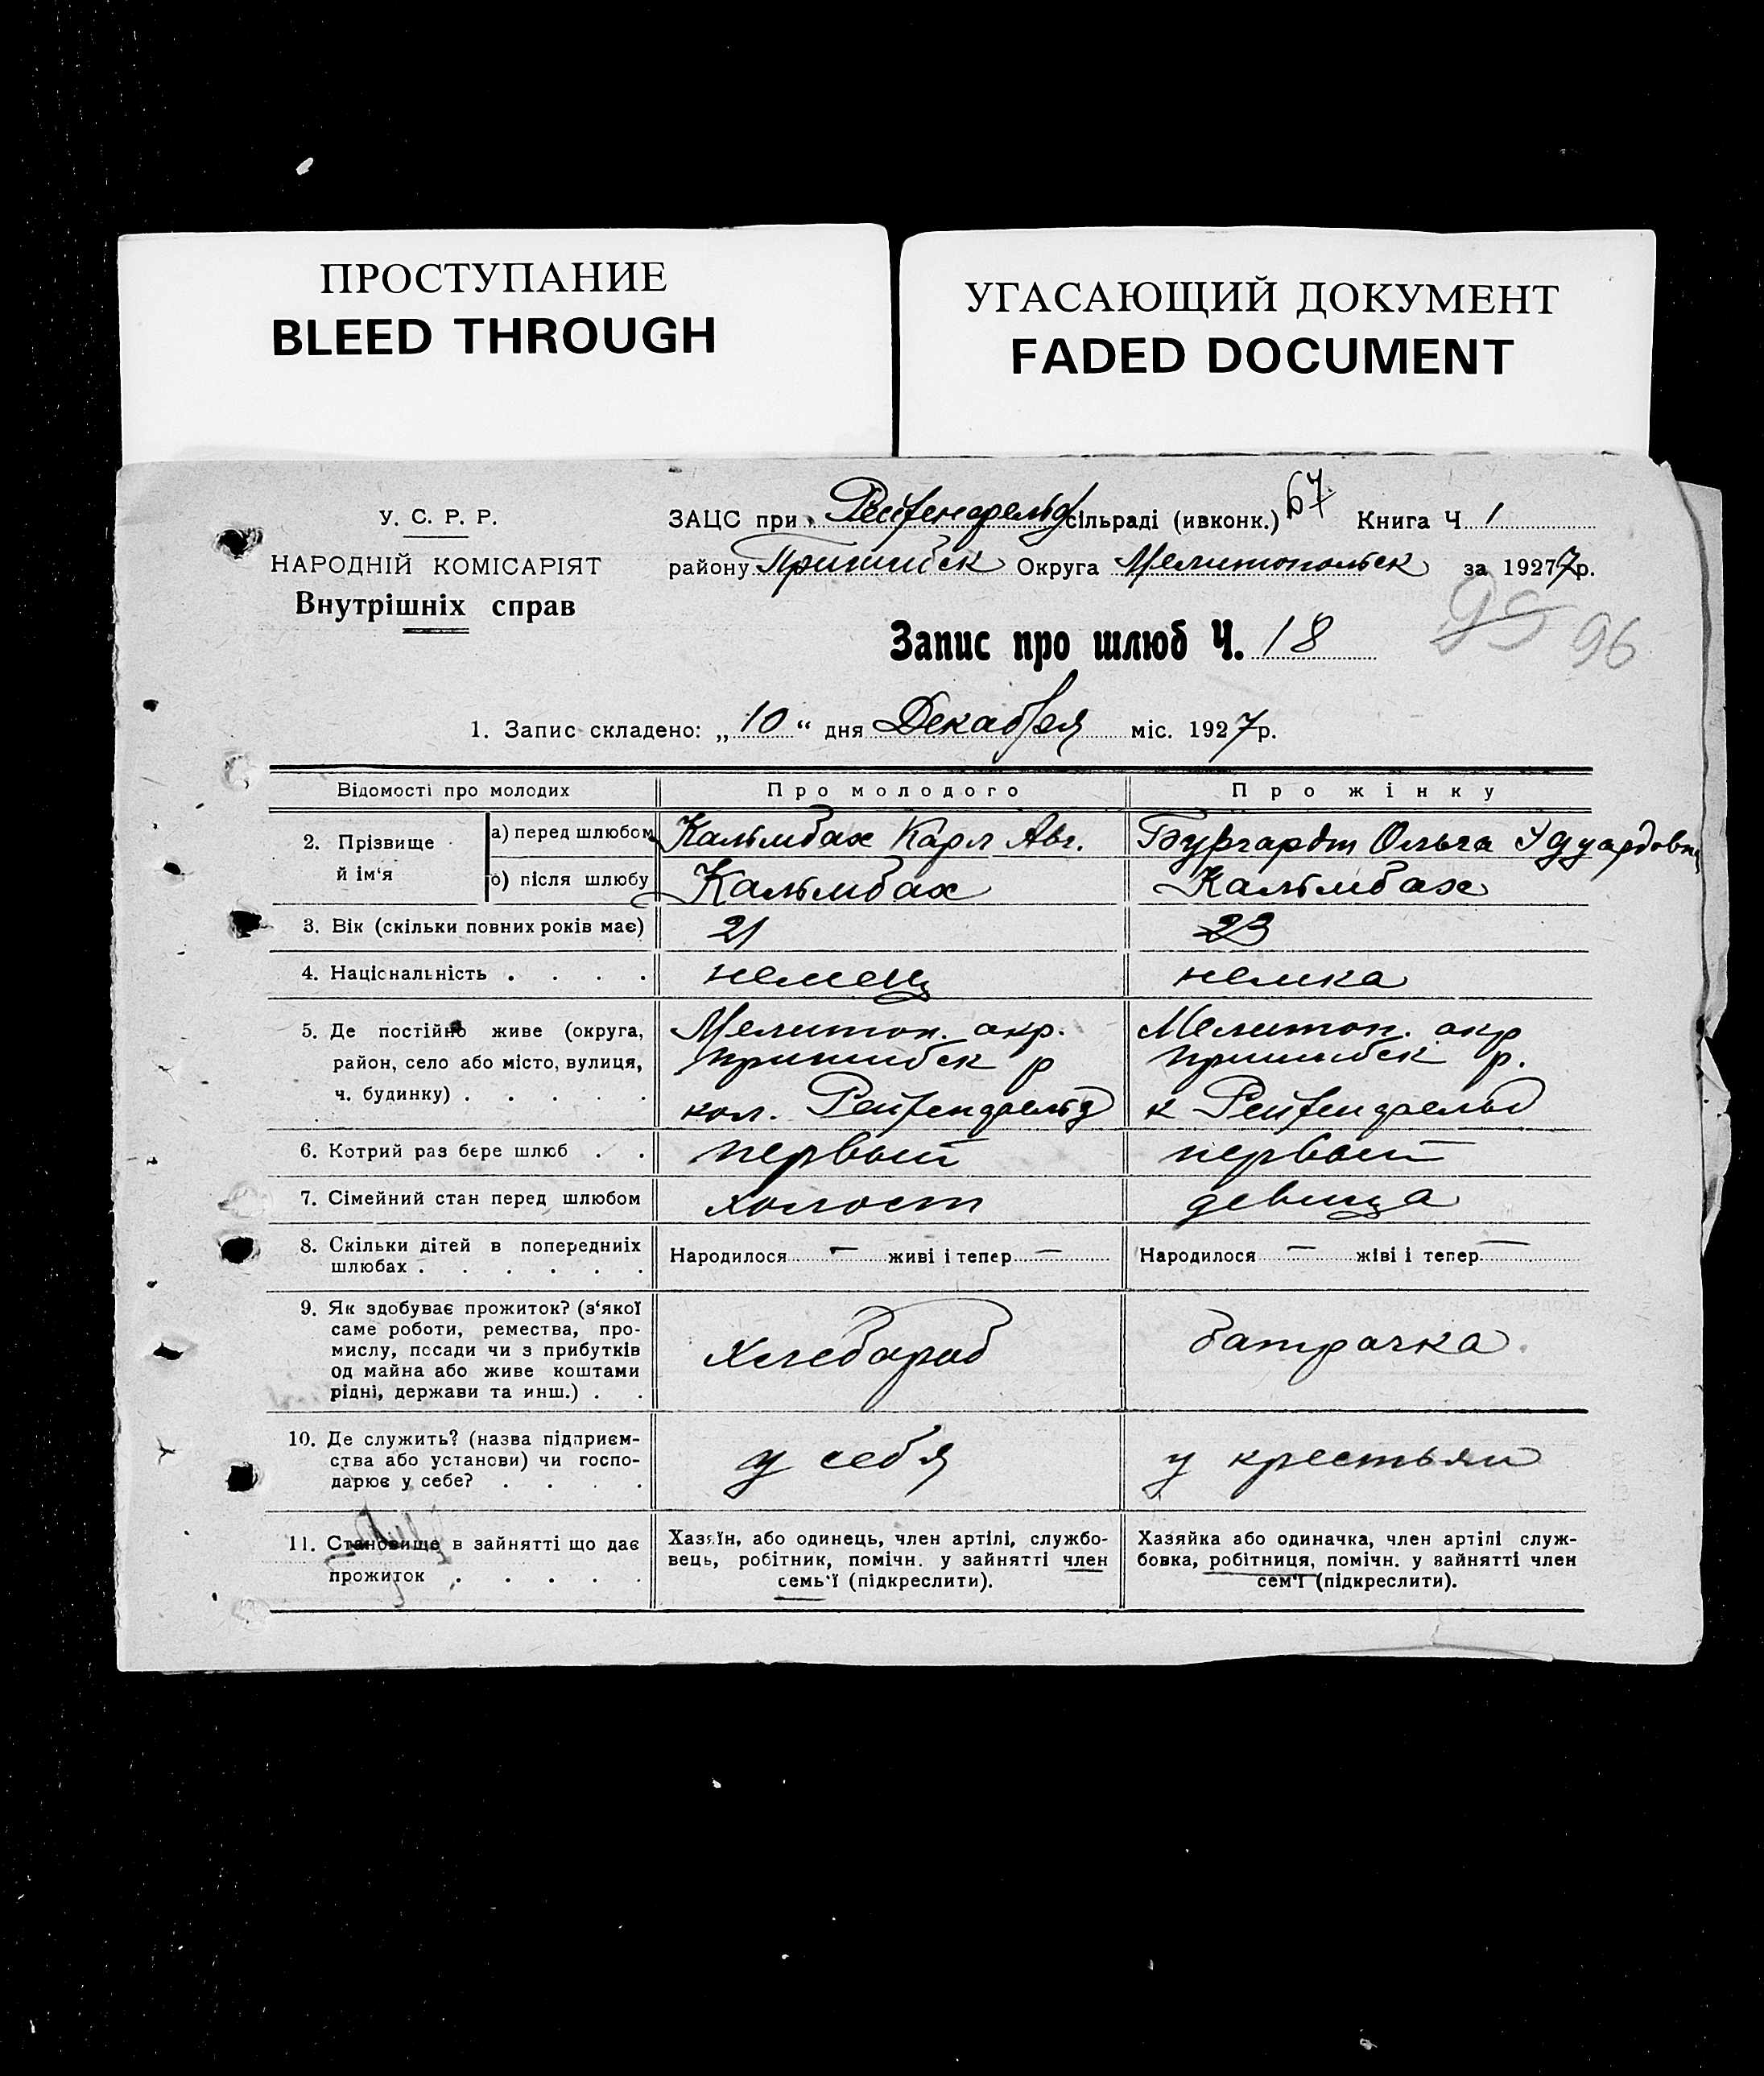 ПРОСТУПАНИЕ
BLEED THROUGH
УГАСАЮЩИЙ ДОКУМЕНТ
FADED DOCUMENT
У. С. Р. Р.
НАРОДНІЙ КОМІСАРІЯТ
Внутрішніх справ
ЗАЦС при Рейфенфельд сільраді (ивконк.) 67 Книга Ч. 1
району Пришибск Округа Мелитопольск за 1927 7р.
95 96
Запис про шлюб Ч. 18
1. Запис складено: „ 10 “ дня Декабря міс. 1927р.
Відомості про молодих Про молодого Про жінку
2. Прізвище й ім‘я а) перед шлюбом Кальмбах Карл Авг. Бургардт Ольга Эдуардовна
б) після шлюбу Кальмбах Кальмбах
3. Вік (скільки повних років має) 21 23
4. Національність . . . . немец немка
5. Де постійно живе (округа, Мелитоп. окр. Мелитоп. окр
район, село або місто, вулиця, пришибск р пришибск р.
ч. будинку) . . . . . кол. Рейфенфельд к Рейфенфельд
6. Котрий раз бере шлюб . . первый первый
7. Сімейний стан перед шлюбом холост девица
8. Скільки дітей в попередниіх Народилося — живі і тепер — Народилося — жіві і тепер —
шлюбах . . . . . .
9. Як здобуває прожиток? (з‘якої
саме роботи, ремества, про-
мислу, посади чи з прибутків хлебороб батрачка
од майна або живе коштами
рідні, держави та инш.) . .
10. Де служить? (назва підприєм-
ства або установи) чи госпо- у себя у крестьян
дарює у себе? . . . .
11. Становище в зайнятті що дає Хазяїн, або одинець, член артілі, службо- Хазяйка або одиначка, член артілі служ-
прожиток . . . . . вець, робітник, помічн. у зайнятті член бовка, робітниця, помічн. у зайнятті член
семь‘ї (підкреслити). сем‘ї (підкреслити).